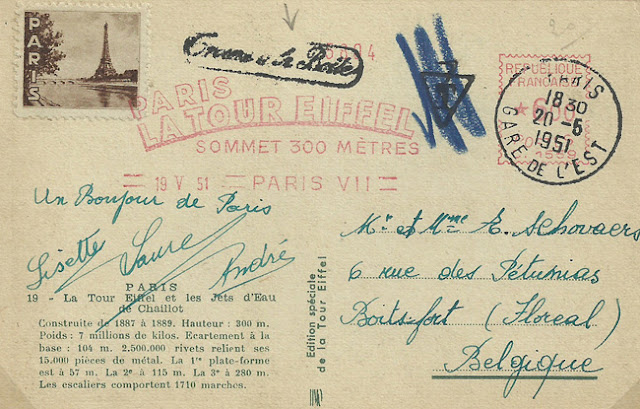 PARIS
Trouvé à la Boîte
PARIS
LA TOUR EIFFEL
SOMMET 300 MÈTRES
19 V 51 PARIS VII
RÉPUBLIQUE
FRANÇAISE
PARIS
18 30
20-5
1951
GARE DE L'EST
T
Un Bonjour de Paris
Lisette Laure André
PARIS
19 - La Tour Eiffel et les Jets d'Eau
de Chaillot
Construite de 1887 à 1889. Hauteur : 300 m.
Poids : 7 millions de kilos. Ecartement à la
base : 104 m. 2.500.000 rivets relient ses
15.000 pièces de métal. La 1re plate-forme
est à 57 m. La 2e à 115 m. La 3e à 280 m.
Les escaliers comportent 1710 marches.
Edition spéciale
de la Tour Eiffel
Mr et Mme E. Schovaers
6 rue des Pétunias
Boitsfort (Floreal)
Belgique